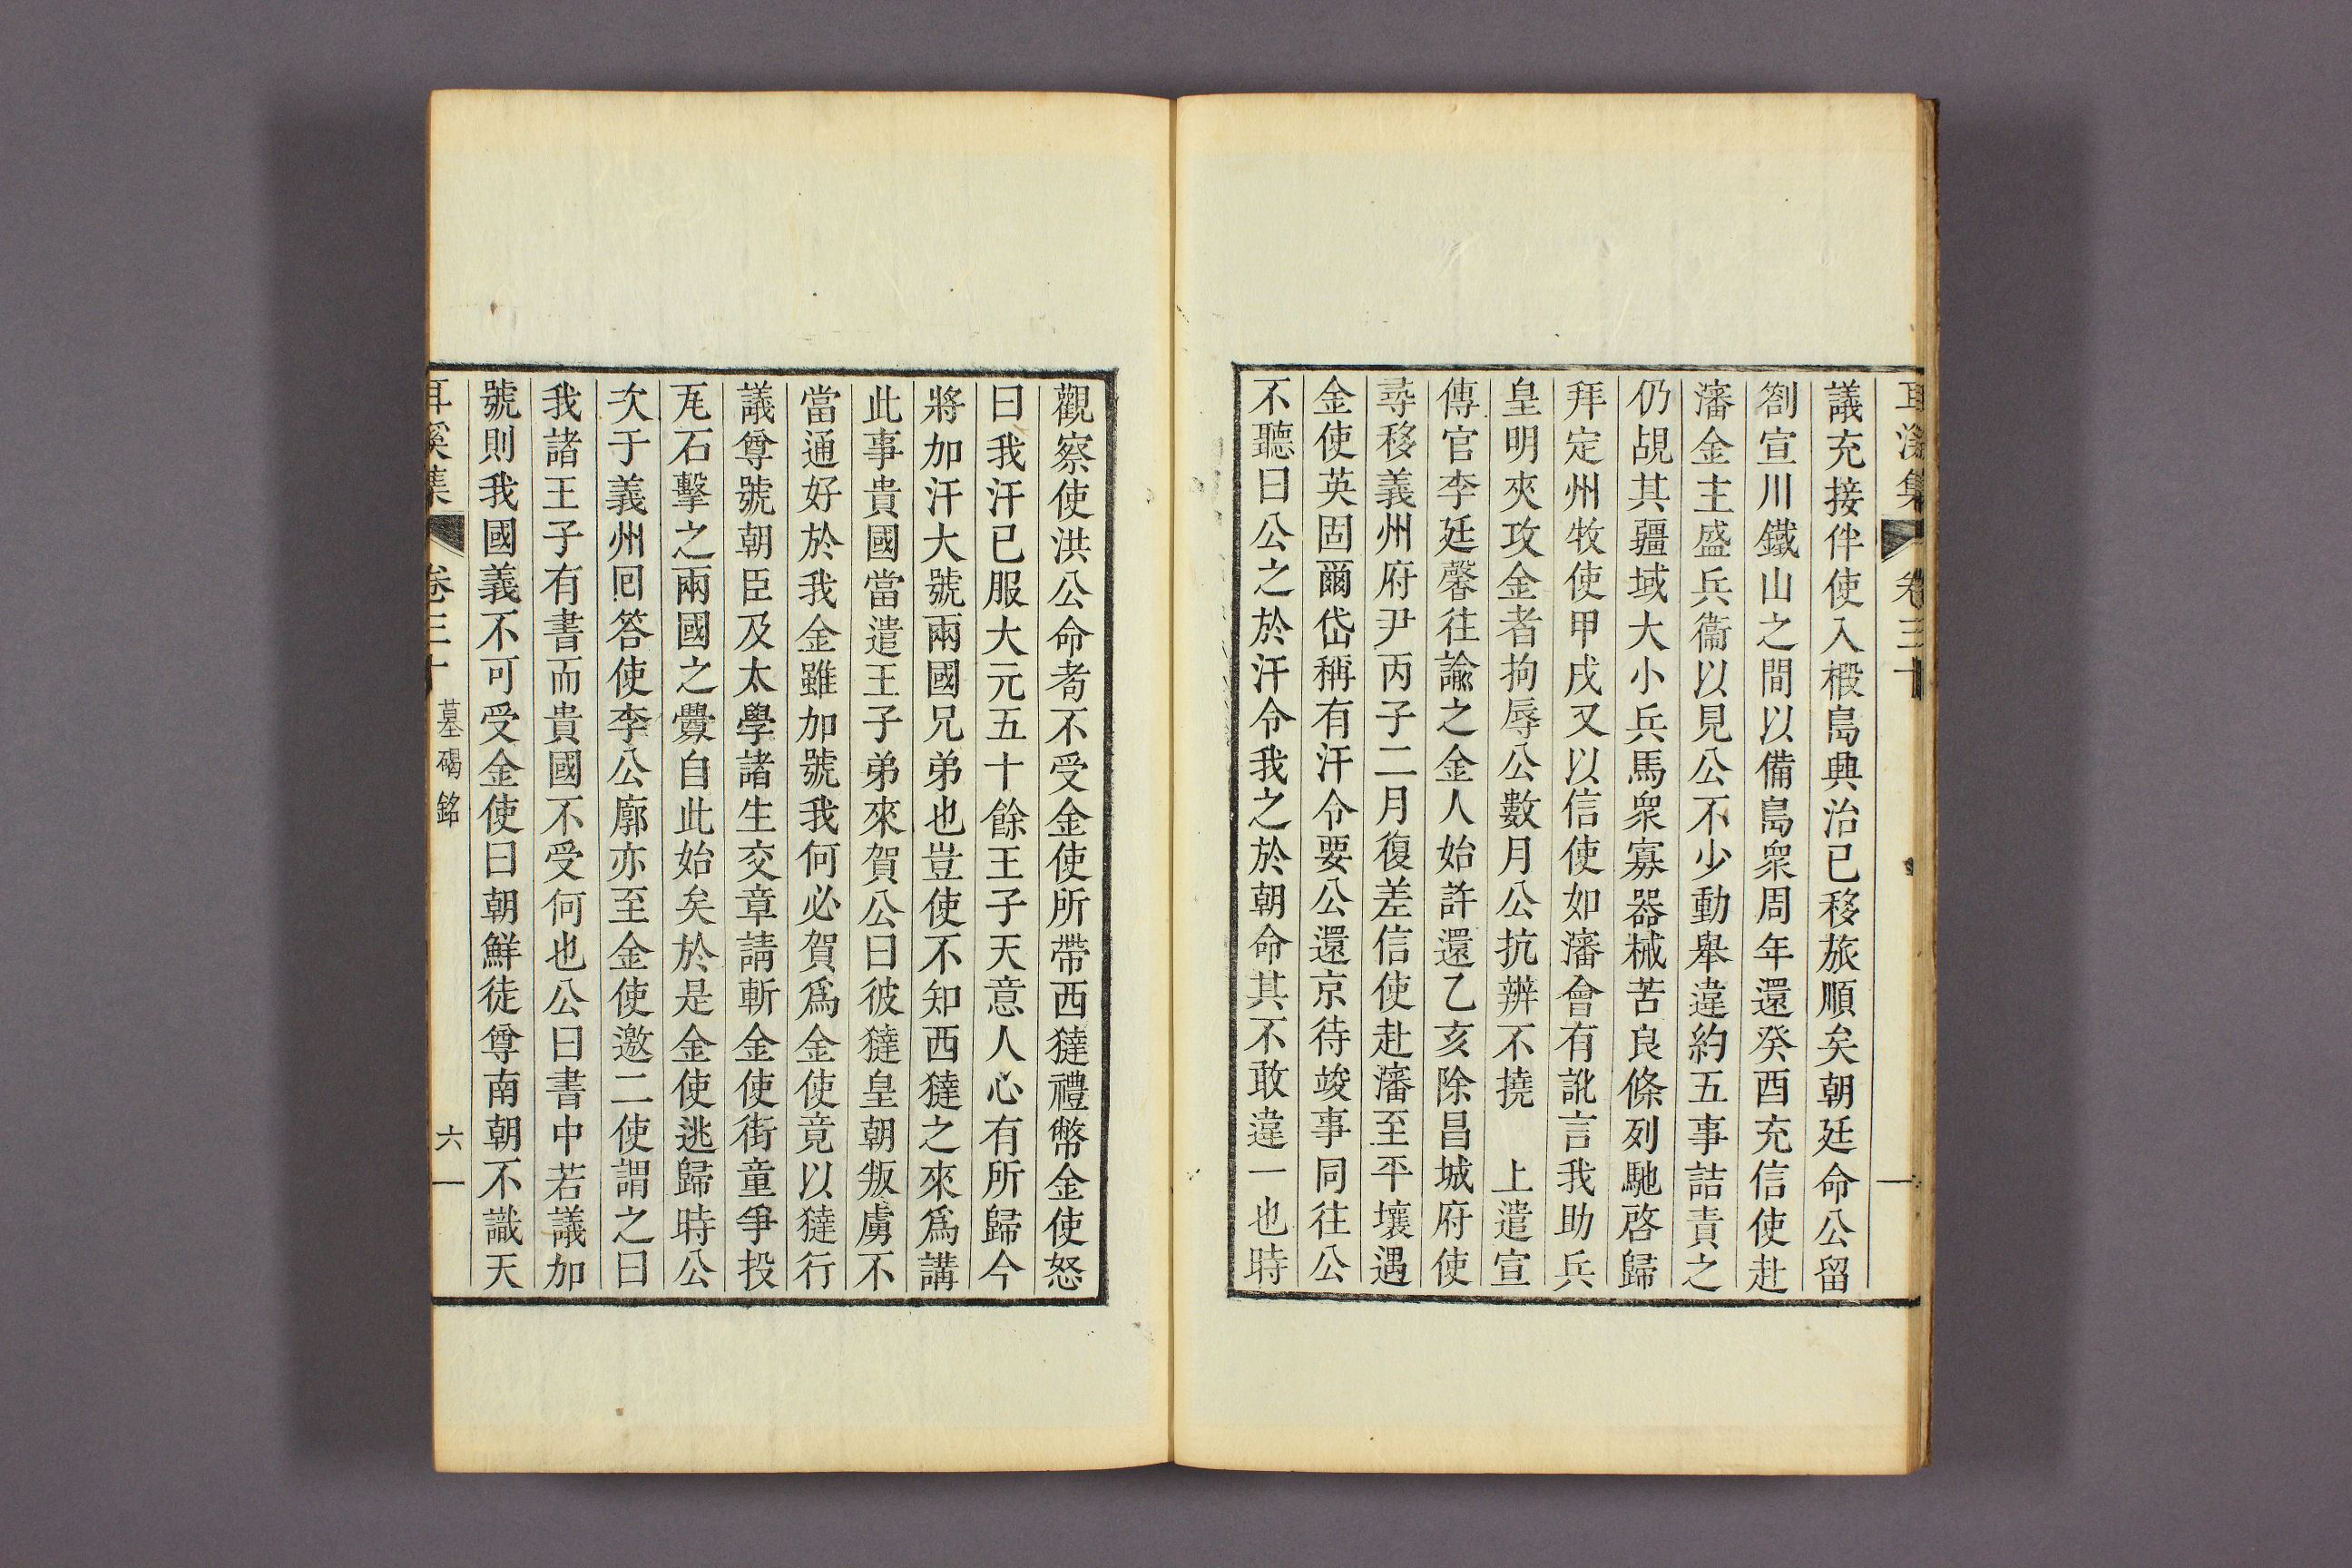 耳溪集 卷三十
議充接伴使入椵島典治已移旅順矣朝廷命公留
劄宣川鐵山之間以備島衆周年還癸酉充信使赴
瀋金主盛兵衞以見公不少動舉違約五事詰責之
仍覘其疆域大小兵馬衆寡器械苦良條列馳啓歸
拜定州牧使甲戌又以信使如瀋會有訛言我助兵
皇明夾攻金者拘辱公數月公抗辨不撓 上遣宣
傳官李廷馨往諭之金人始許還乙亥除昌城府使
尋移義州府尹丙子二月復差信使赴瀋至平壤遇
金使英固爾岱稱有汗令要公還京待竣事同往公
不聽曰公之於汗令我之於朝命其不敢違一也時
觀察使洪公命耈不受金使所帶西㺚禮幣金使怒
曰我汗已服大元五十餘王子天意人心有所歸今
將加汗大號兩國兄弟也豈使不知西㺚之來爲講
此事貴國當遣王子弟來賀公曰彼㺚皇朝叛虜不
當通好於我金雖加號我何必賀爲金使竟以㺚行
議尊號朝臣及太學諸生交章請斬金使街童爭投
瓦石擊之兩國之釁自此始矣於是金使逃歸時公
次于義州回答使李公廓亦至金使邀二使謂之曰
我諸王子有書而貴國不受何也公曰書中若議加
號則我國義不可受金使曰朝鮮徒尊南朝不識天
耳溪集 卷三十 墓碣銘 六一